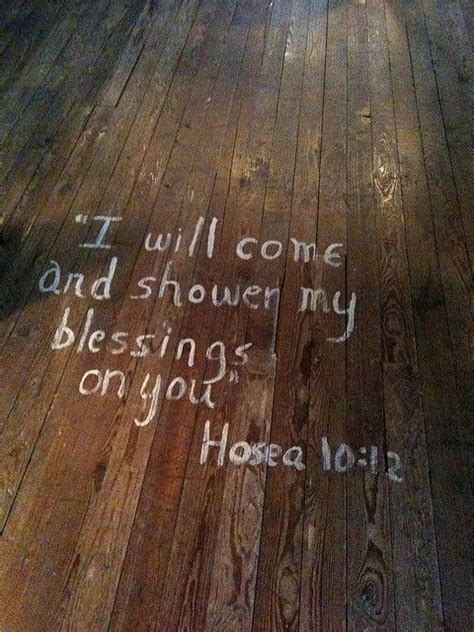 "I will come
and shower my
blessings
on you"
Hosea 10:12